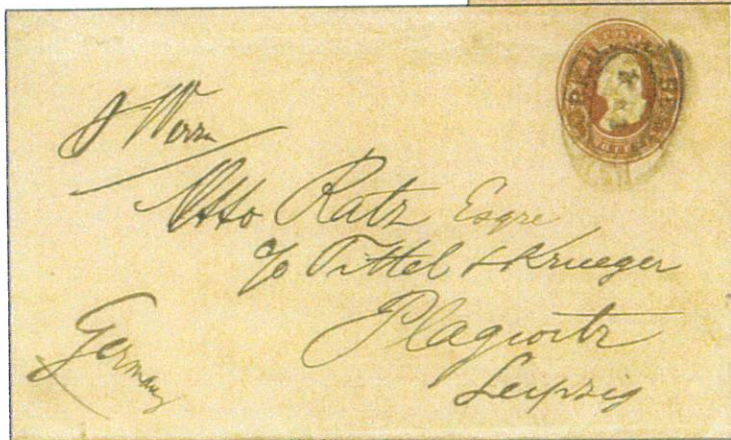 Otto Ratz Esqre
c/o Tittel & Krueger
Plagwitz
Leipzig
Germany